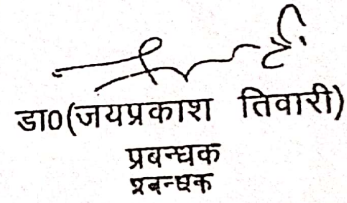 डा0(जयप्रकाश तिवारी)
प्रबन्धक
प्रबन्धक